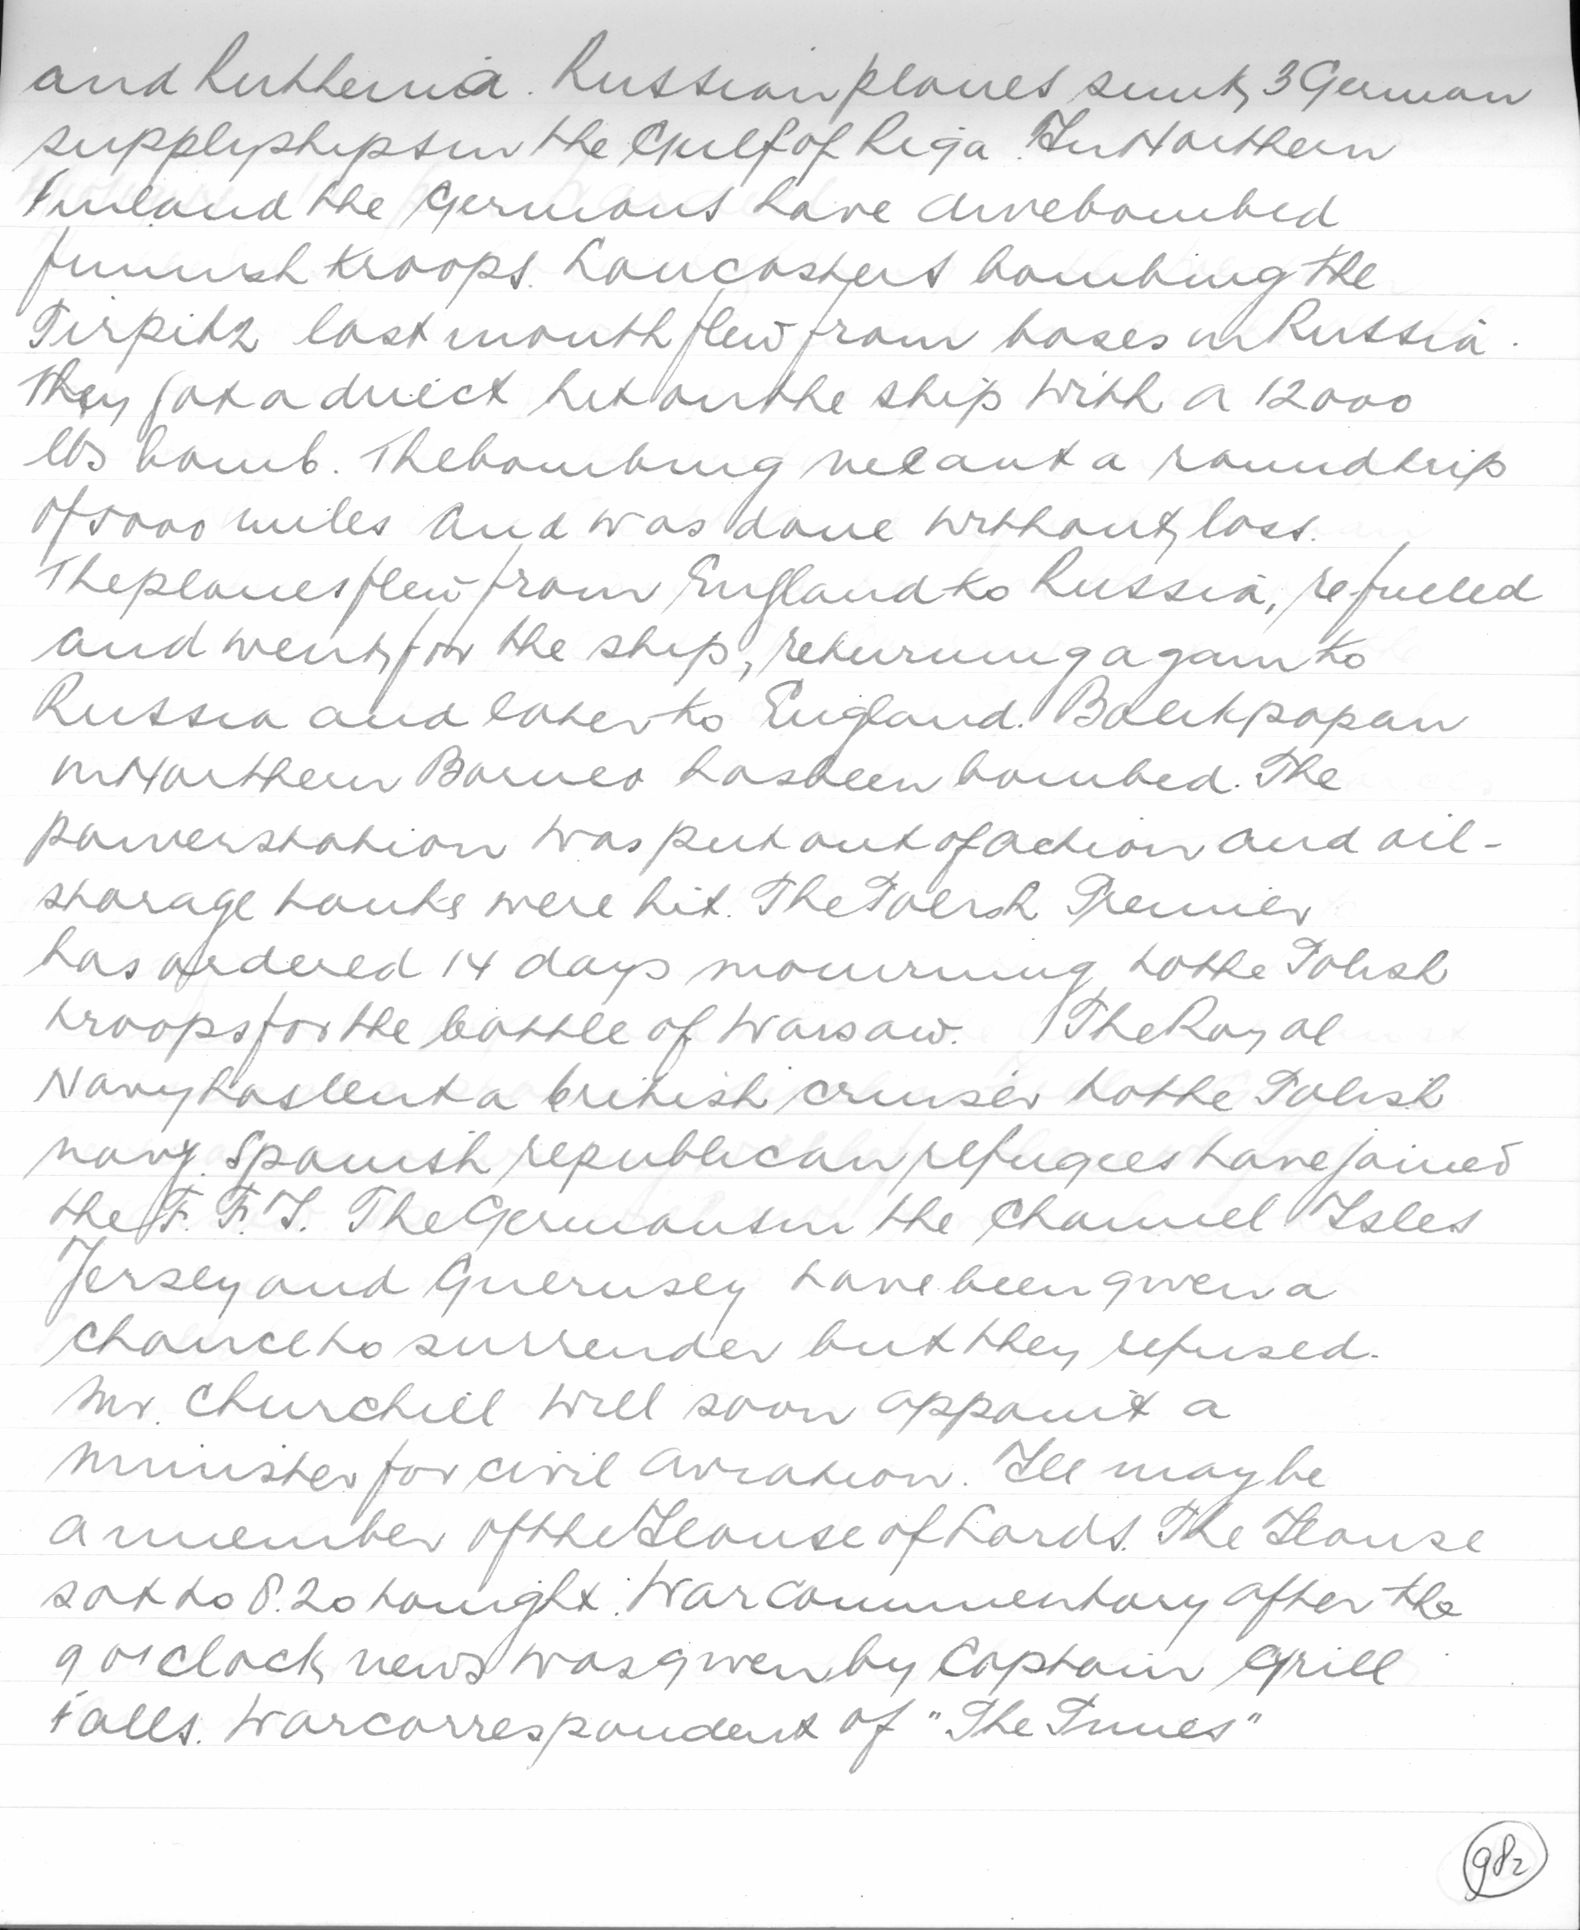 and Ruthenia. Russian planes sunk 3 German
supplyships in the Gulf of Riga. In Northern
Finland the Germans have divebombed
finnish troops. Lancasters bombing the
Tirpitz last month flew from bases in Russia.
They got a direct hit on the ship with a 12000
lbs bomb. The bombing meant a roundtrip
of 5000 miles and was done without loss.
The planes flew from England to Russia, refueled
and went for the ship, returning again to
Russia and later to England. Balikpapan
in Northern Borneo has been bombed. The
powerstation was put out of action and oil-
storage tanks were hit. The Polish Premier
has ordered 14 days mourning to the Polish
troops for the battle of Warsaw. The Royal
Navy has lent a british cruiser to the Polish
navy. Spanish republican refugees have joined
the F. F. I. The Germans in the Channel Isles
Jersey and Guernsey have been given a
chance to surrender but they refused.
Mr. Churchill will soon appoint a
minister for civil aviation. He may be
a member of the House of Lords. The House
sat to 8.20 tonight. War commentary after the
9 o'clock news was given by Captain Grill
Falls. Warcorrespondent of "The Times"
982